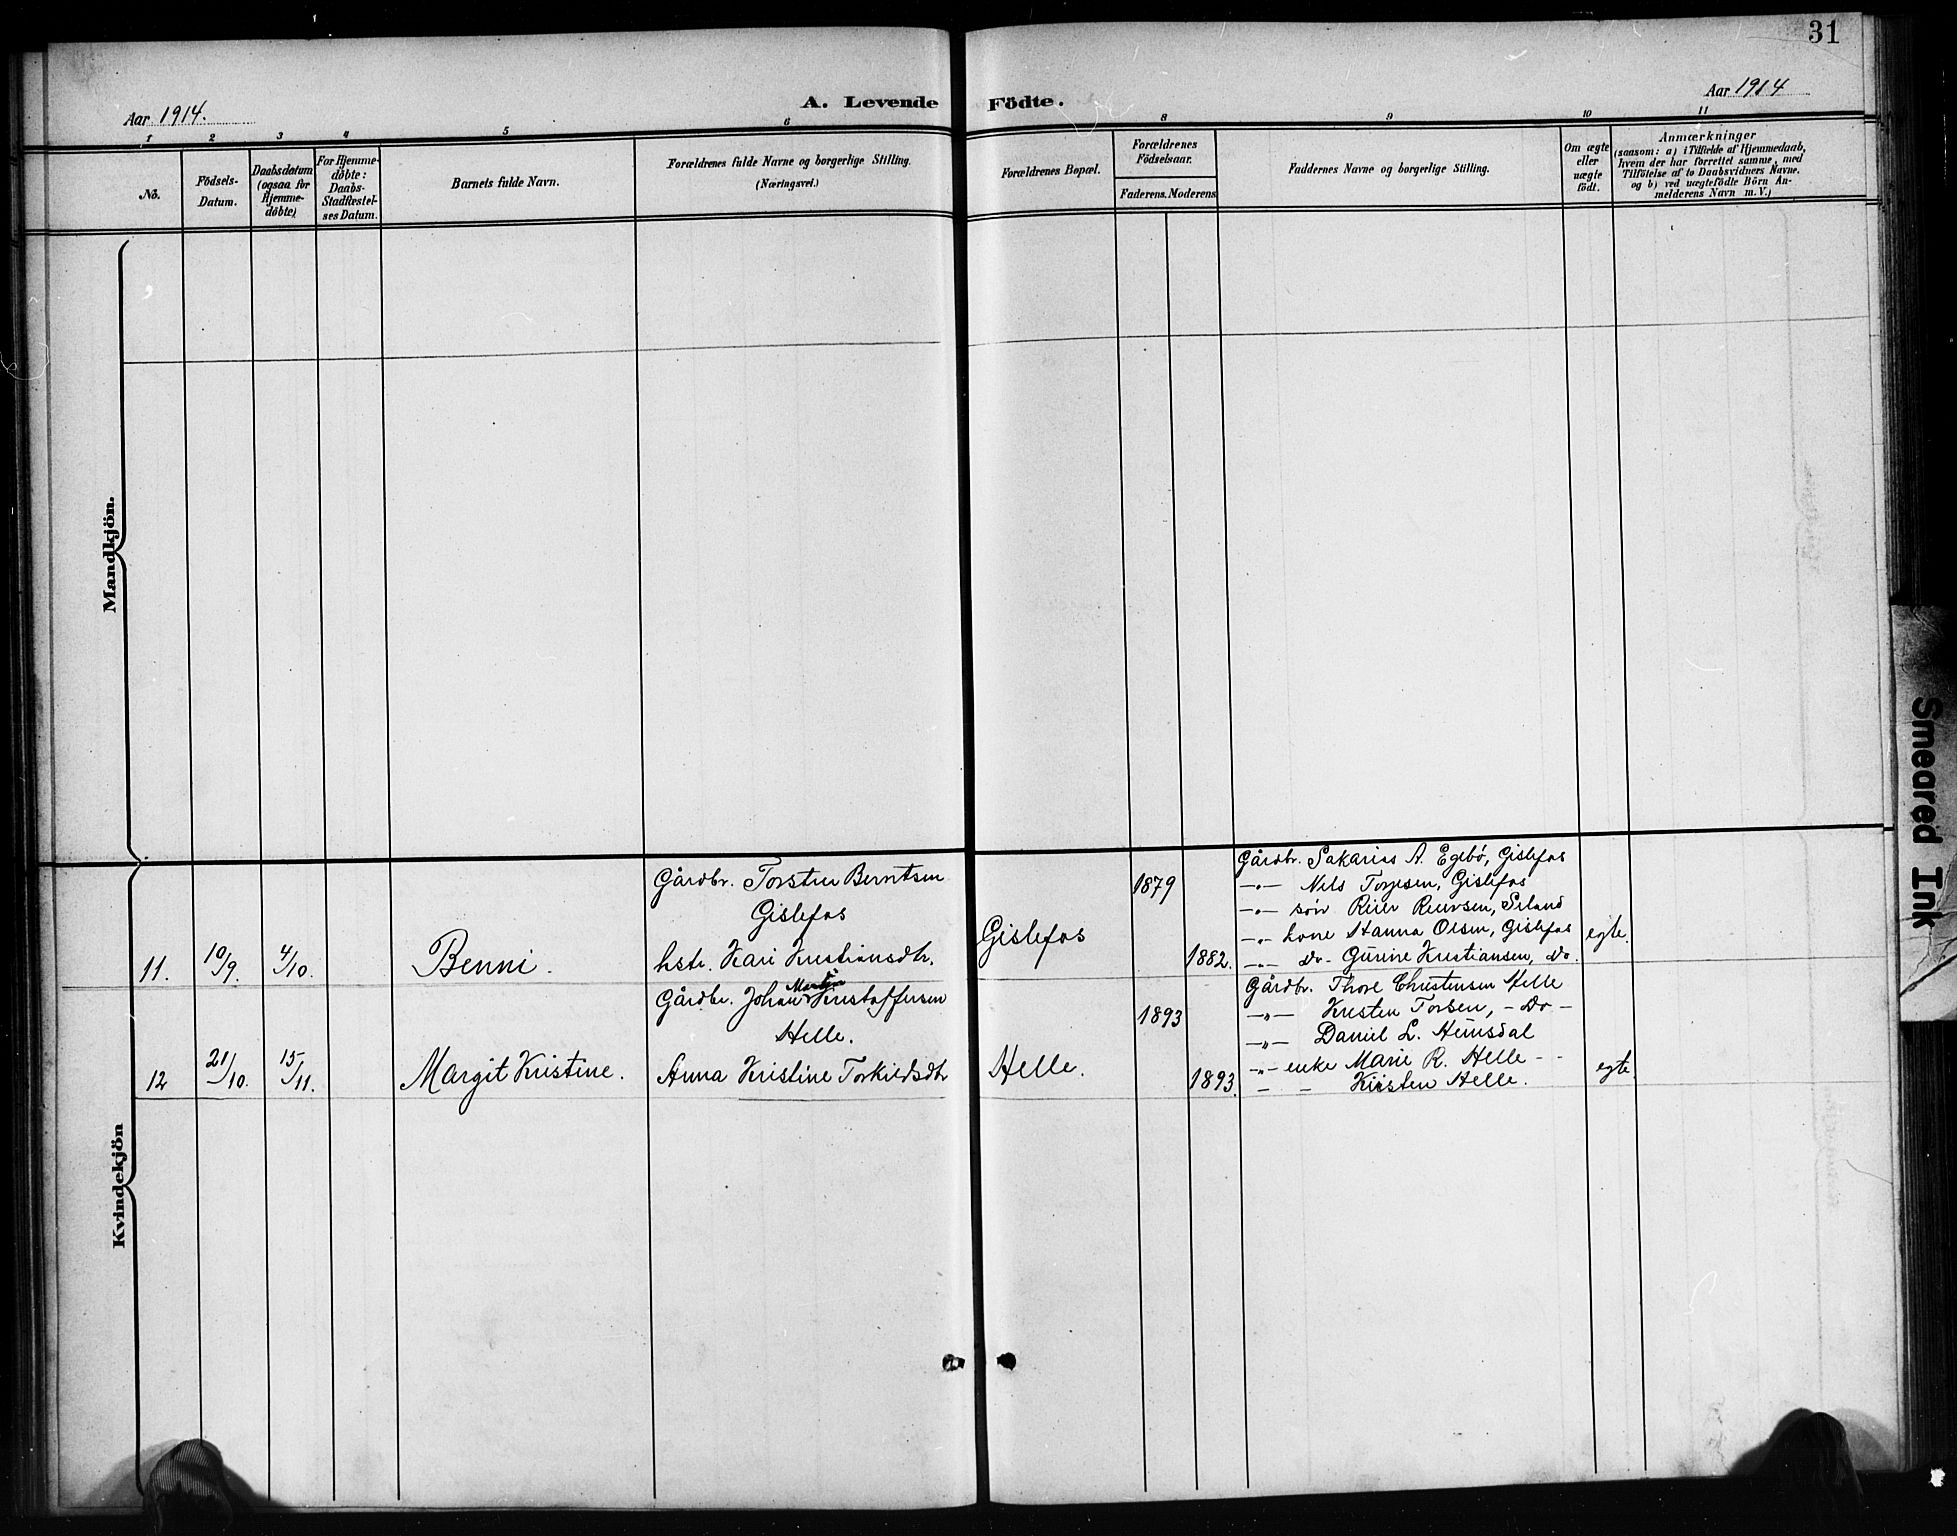 31
Aar 1914.
A. Levende Födte.
Aar 1914
1 2 3 4 5 6 8 9 10 11
No.
Födsels-
Datum.
Daabsdatum
(ogsaa for
Hjemme-
döbte)
For Hjemme-
döbte:
Daabs-
Stadfæstel-
ses Datum.
Barnets fulde Navn.
Forældrenes fulde Navne og borgerlige Stilling.
(Næringsvei.)
Forældrenes Bopæl.
Forældrenes
Födselsaar.
Faderens. Moderens
Faddernes Navne og borgerlige Stilling.
Om ægte
eller
uægte
født.
Anmærkninger
(saasom: a) i Tilfælde af Hjemmedaab,
hvem der har forrettet samme, med
Tilföielse af to Daabsvidners Navne.
og b) ved uægtefödte Börn An-
melderens Navn m. V.)
Mandkjön.
Kvindekjön
11.
10/9.
4/10.
Benni.
Gårdbr. Torsten Berntsen
Gislefos
hstr. Kari Kristiansdtr.
Gislefos
1879
1882.
Gårdbr. Sakarias A. Egebö, Gislefos
-"- Nels Torjesen, Gislefos
-"- sön Reier Reiersen,
-"- kone Hanna Olsen, Gislefos
-"- Do- Gurine Kristiansen, Do.
egte.
12
21/10.
15/11.
Margit Kristine.
Martin
Gårdbr. Johan Kristoffersen
Helle.
Anna Kristine Torkildsdtr
Helle.
1893
1893.
Gårdbr. Thore Christensen Helle
-"- Kristen Torsen, - Do -
-"- Daniel L. Heimsdal
-"- enke Marie R. Helle - -
- - Kristen Helle.
egte.
Smeared Ink